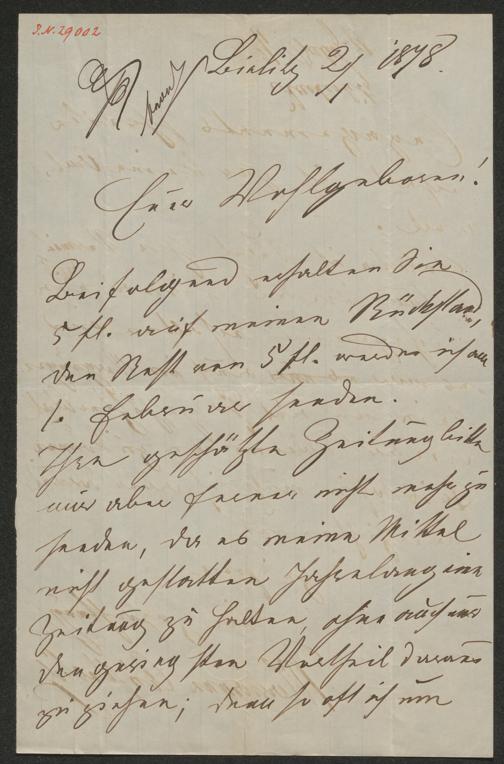 I.N. 29002
Bielitz 2/1 1878.
Euer Wohlgeboren!
Beifolgend erhalten Sie
5 fl. auf meinen Rückstand
den Rest von 5 fl. werde ich am
1. Februar senden.
Ihre geschätzte Zeitung bitte
mir aber ferner nicht mehr zu
senden, da es meine Mittel
nicht gestatten Jahrelang eine
Zeitung zu halten, ohne auch nur
den geringsten Vortheil daraus
zu ziehen; denn so oft ich um